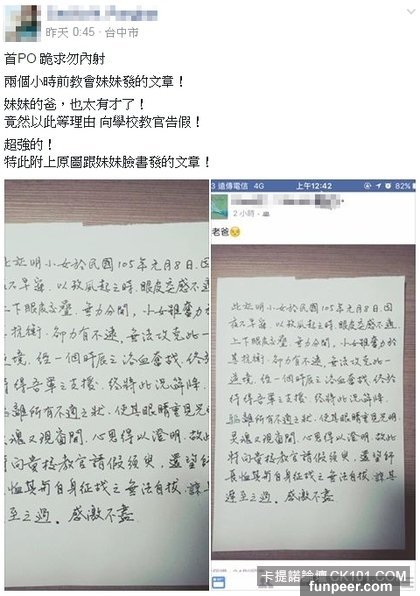 昨天 0:45 · 台中市
首PO 跪求勿內射
兩個小時前教會妹妹發的文章！
妹妹的爸，也太有才了！
竟然以此等理由 向學校教官告假！
超強的！
特此附上原圖跟妹妹臉書發的文章！
此証明小女於民國105年元月8日.因
不早寐，以致夙起之時，眼皮交感不適
上下眼皮交疊，無力分開，小女雖奮力
抗衡，卻力有不逮，無法攻克此一
逆境，經一個時辰之浴血奮戰，終於
得吾軍之支援，終將此況解除，
離所有不適之狀，使其眼睛重見光
靈魂又視窗開，心思得以澄明，故此
特向貴校教官請假須臾，還望師
恤其每自身征戰之無法自拔，諒其
至之過，感激不盡
遠傳電信 4G 上午12:42 82%
2 小時
老爸
此証明小女於民國105年元月8日.因
夜不早寐，以致夙起之時，眼皮交感不適
上下眼皮交疊，無力分開，小女雖奮力於
其抗衡，卻力有不逮，無法攻克此一
逆境，經一個時辰之浴血奮戰，終於
得吾軍之支援，終將此況解除，
驅離所有不適之狀，使其眼睛重見光明
靈魂又視窗開，心思得以澄明，故此
特向貴校教官請假須臾，還望師
長恤其每自身征戰之無法自拔，諒其
遲至之過，感激不盡
卡提諾論壇 CK101.COM
funpeer.com